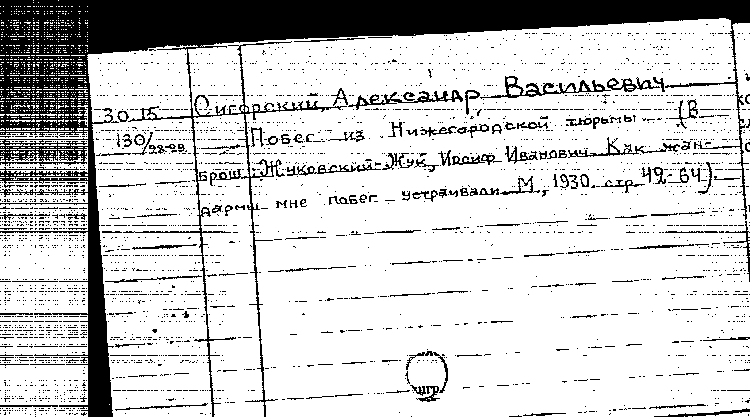 30.15 Сигорский, Александр Васильевич
130/28-98 Побег из Нижегородской тюрьмы (В
брош. Жуковский-Жук, Иосиф Иванович. Как жан-
дармы мне побег устраивали. М., 1930. стр. 49-64).